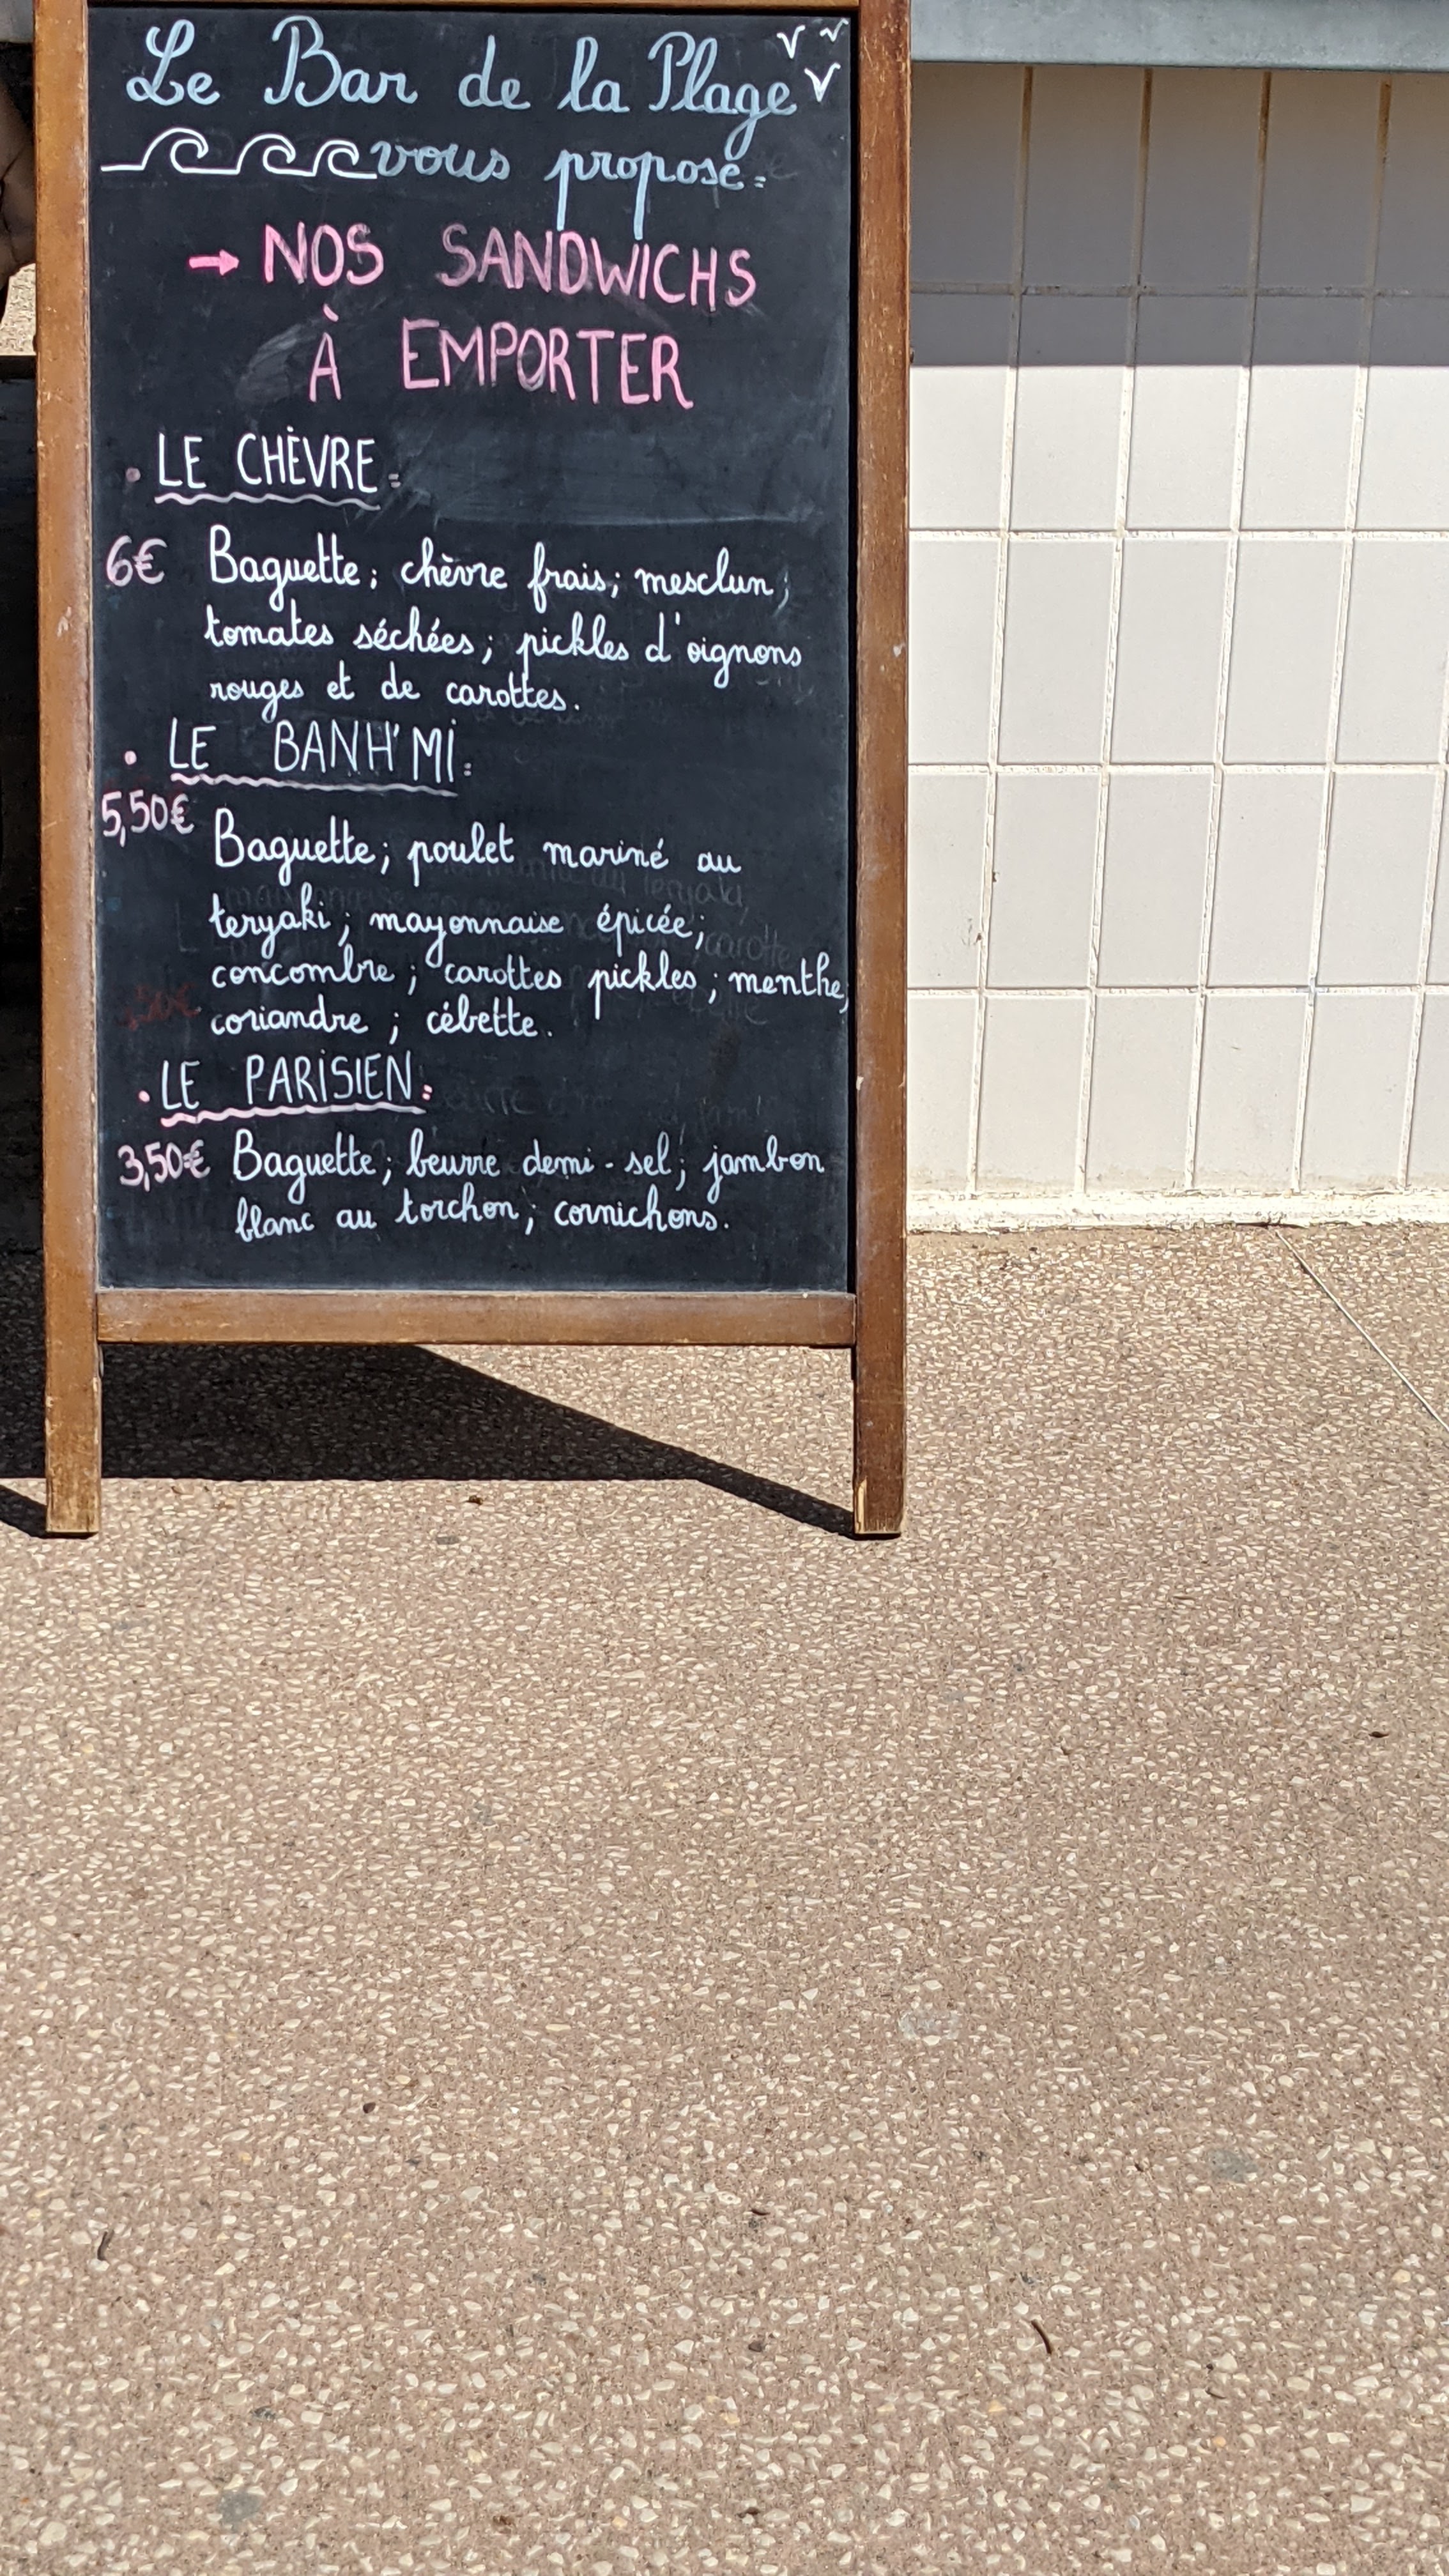 Le Bar de la Plage
vous propose:
→ NOS SANDWICHS
À EMPORTER
• LE CHÈVRE:
6€ Baguette; chèvre frais; mesclun;
tomates séchées; pickles d'oignons
rouges et de carottes.
• LE BANH'MI:
5,50€
Baguette; poulet mariné au
teryaki; mayonnaise épicée;
concombre; carottes pickles; menthe;
coriandre; cébette.
• LE PARISIEN:
3,50€ Baguette; beurre demi-sel; jambon
blanc au torchon; cornichons.